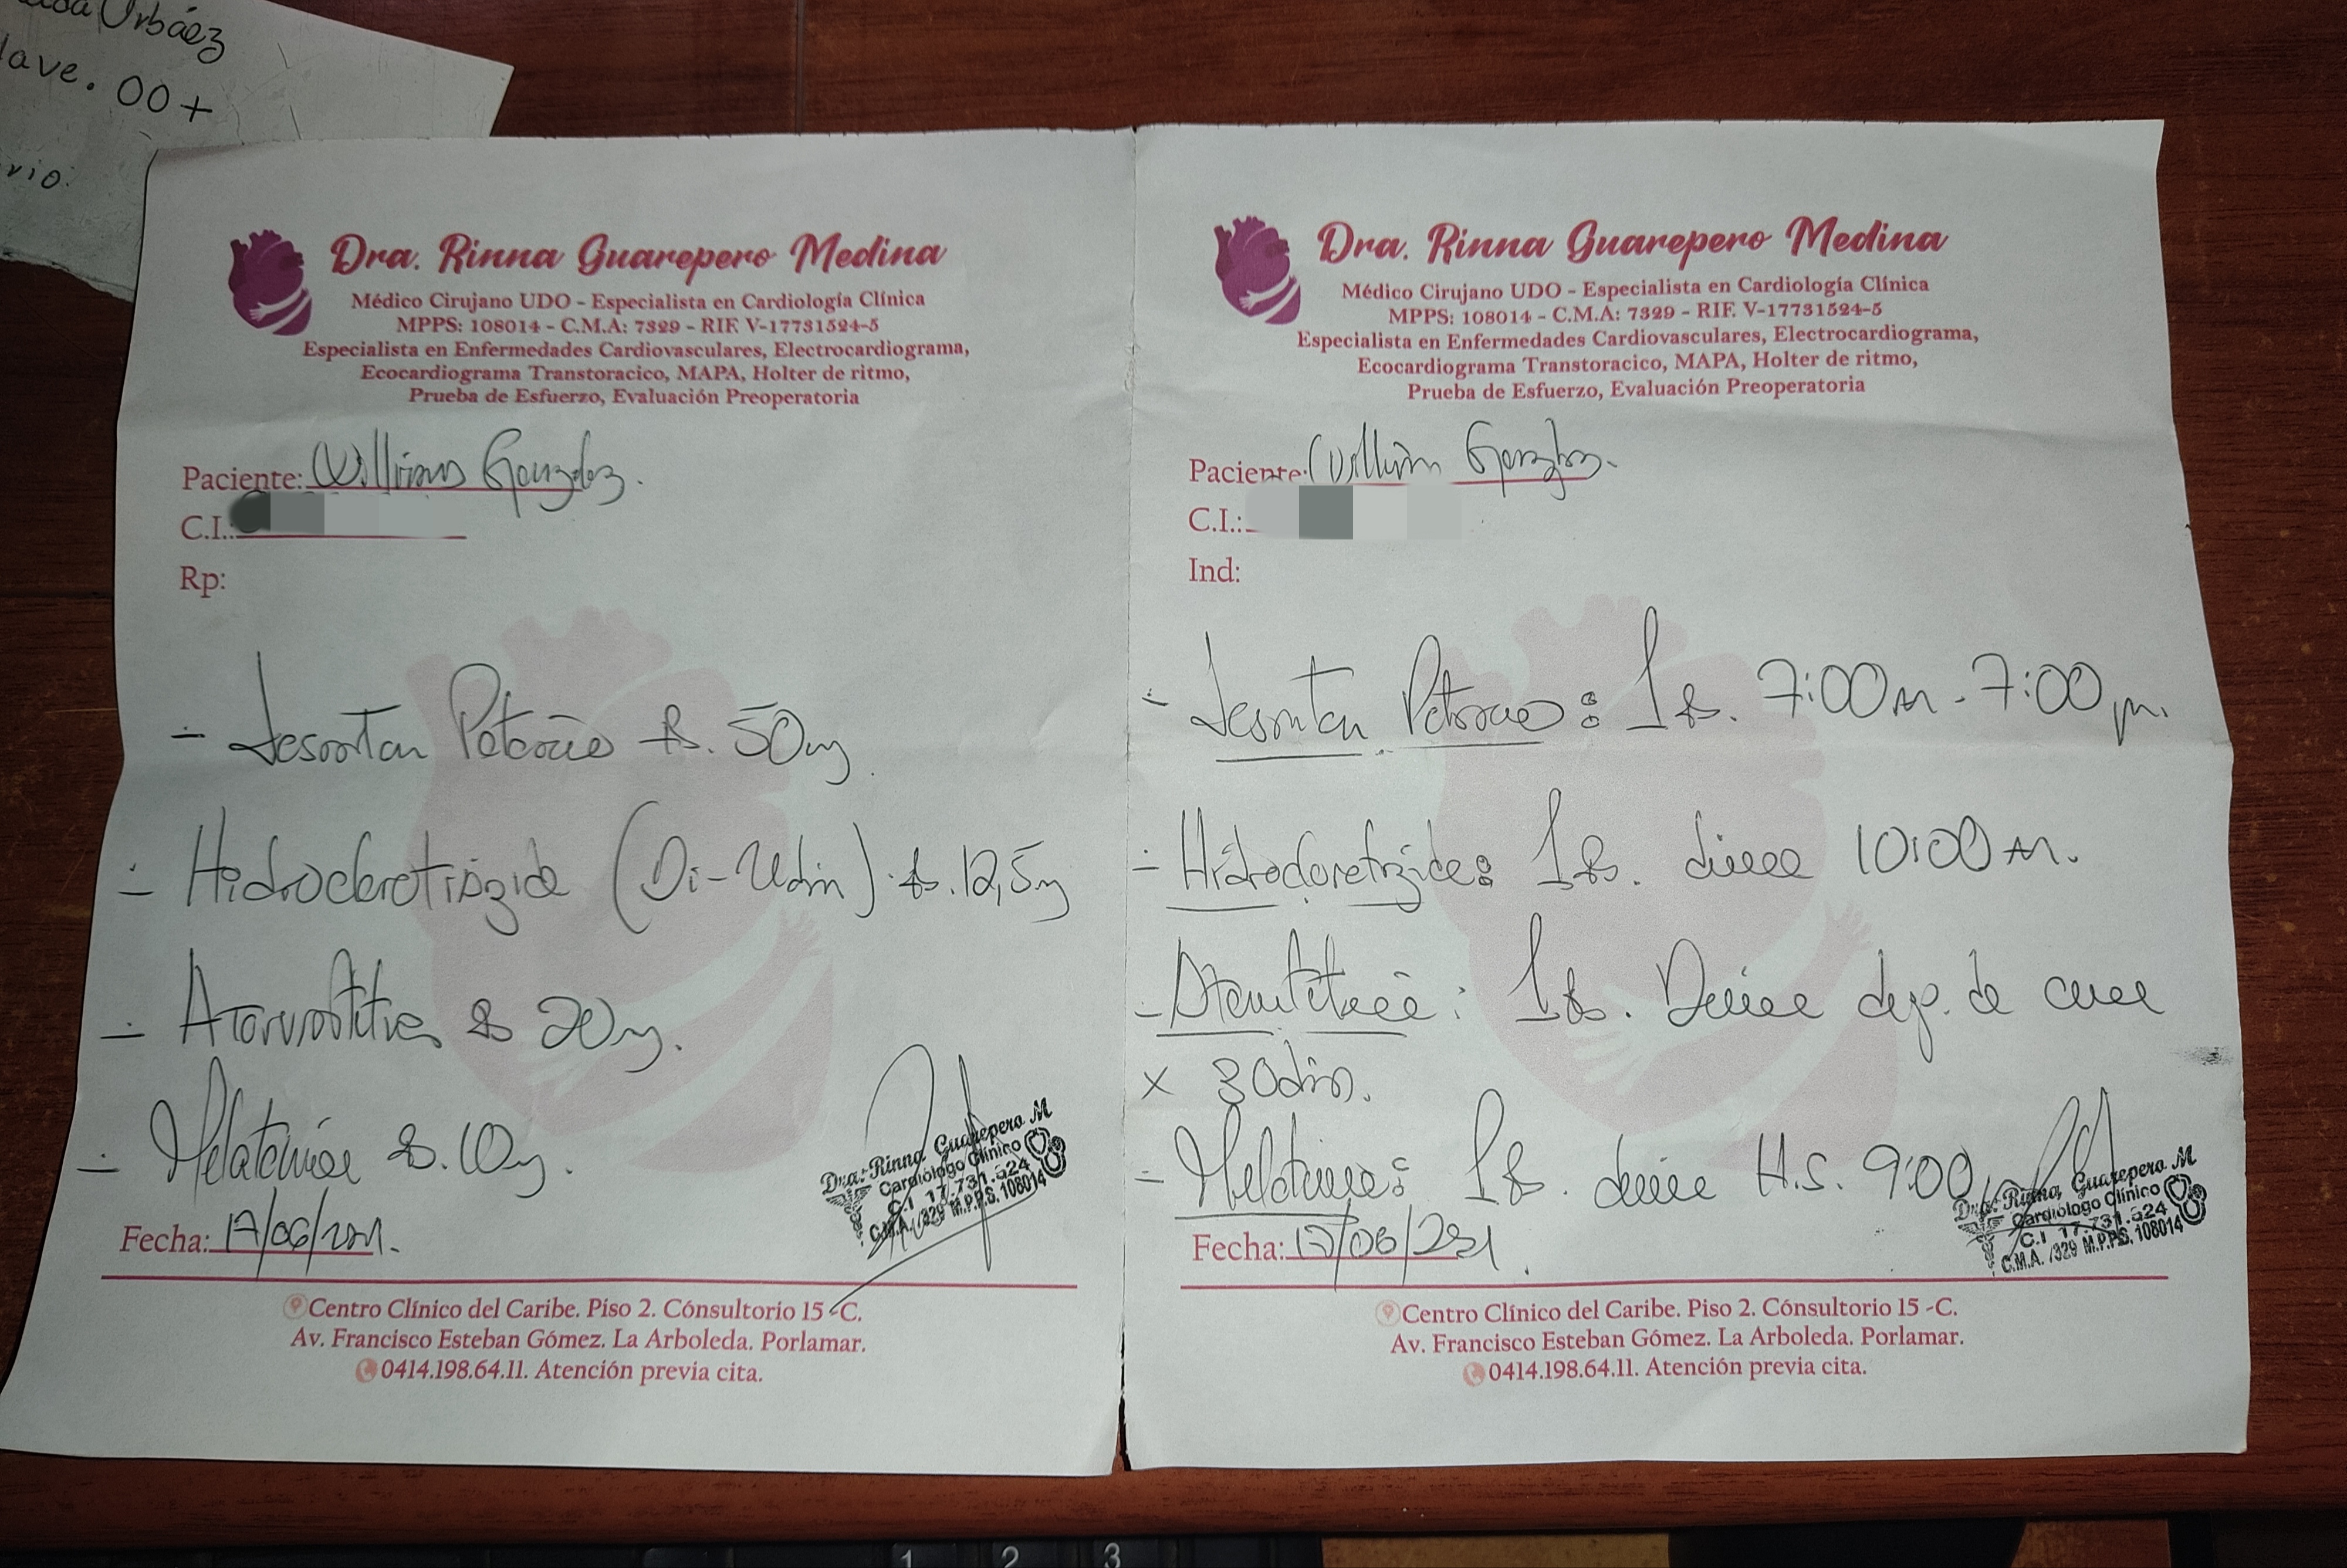 Urbáez
lave. 00+
rio:
Dra. Rinna Guarepero Medina
Médico Cirujano UDO - Especialista en Cardiología Clínica
MPPS: 108014 - C.M.A: 7329 - RIF. V-17731524-5
Especialista en Enfermedades Cardiovasculares, Electrocardiograma,
Ecocardiograma Transtoracico, MAPA, Holter de ritmo,
Prueba de Esfuerzo, Evaluación Preoperatoria
Paciente: Williams González.
C.I.:
Rp:
- Losartan Potásico tb. 50mg.
- Hidroclorotiazida (Di-Udin). tb. 12,5mg
- Atorvastatina tb 20mg.
- Melatonina tb. 10mg.
Dra. Rinna Guarepero M
Cardiólogo Clínico
C.I 17.731.524
C.M.A. 7329 M.P.P.S. 108014
Fecha: 17/06/
Centro Clínico del Caribe. Piso 2. Cónsultorio 15 -C.
Av. Francisco Esteban Gómez. La Arboleda. Porlamar.
0414.198.64.11. Atención previa cita.
Dra. Rinna Guarepero Medina
Médico Cirujano UDO - Especialista en Cardiología Clínica
MPPS: 108014 - C.M.A: 7329 - RIF. V-17731524-5
Especialista en Enfermedades Cardiovasculares, Electrocardiograma,
Ecocardiograma Transtoracico, MAPA, Holter de ritmo,
Prueba de Esfuerzo, Evaluación Preoperatoria
Paciente: William González.
C.I.:
Ind:
- Losartan Potásico: 1 tb. 7:00am - 7:00pm.
- Hidroclorotiazida: 1 tb. diaria 10:00am.
- Atorvastatina: 1 tb. Diaria desp. de cena
x 30 días.
- Melatonina: 1 tb. diaria H.S. 9:00
Dra. Rinna Guarepero M
Cardiólogo Clínico
C.I 17.731.524
C.M.A. 7329 M.P.P.S. 108014
Fecha: 17/06/
Centro Clínico del Caribe. Piso 2. Cónsultorio 15 -C.
Av. Francisco Esteban Gómez. La Arboleda. Porlamar.
0414.198.64.11. Atención previa cita.
1 2 3